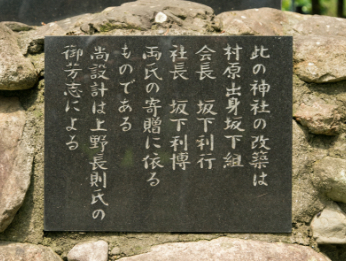 此の神社の改築は
村原出身坂下組
会長　坂下利行
社長　坂下利博
両氏の寄贈に依る
ものである
尚設計は上野長則氏の
御芳志による